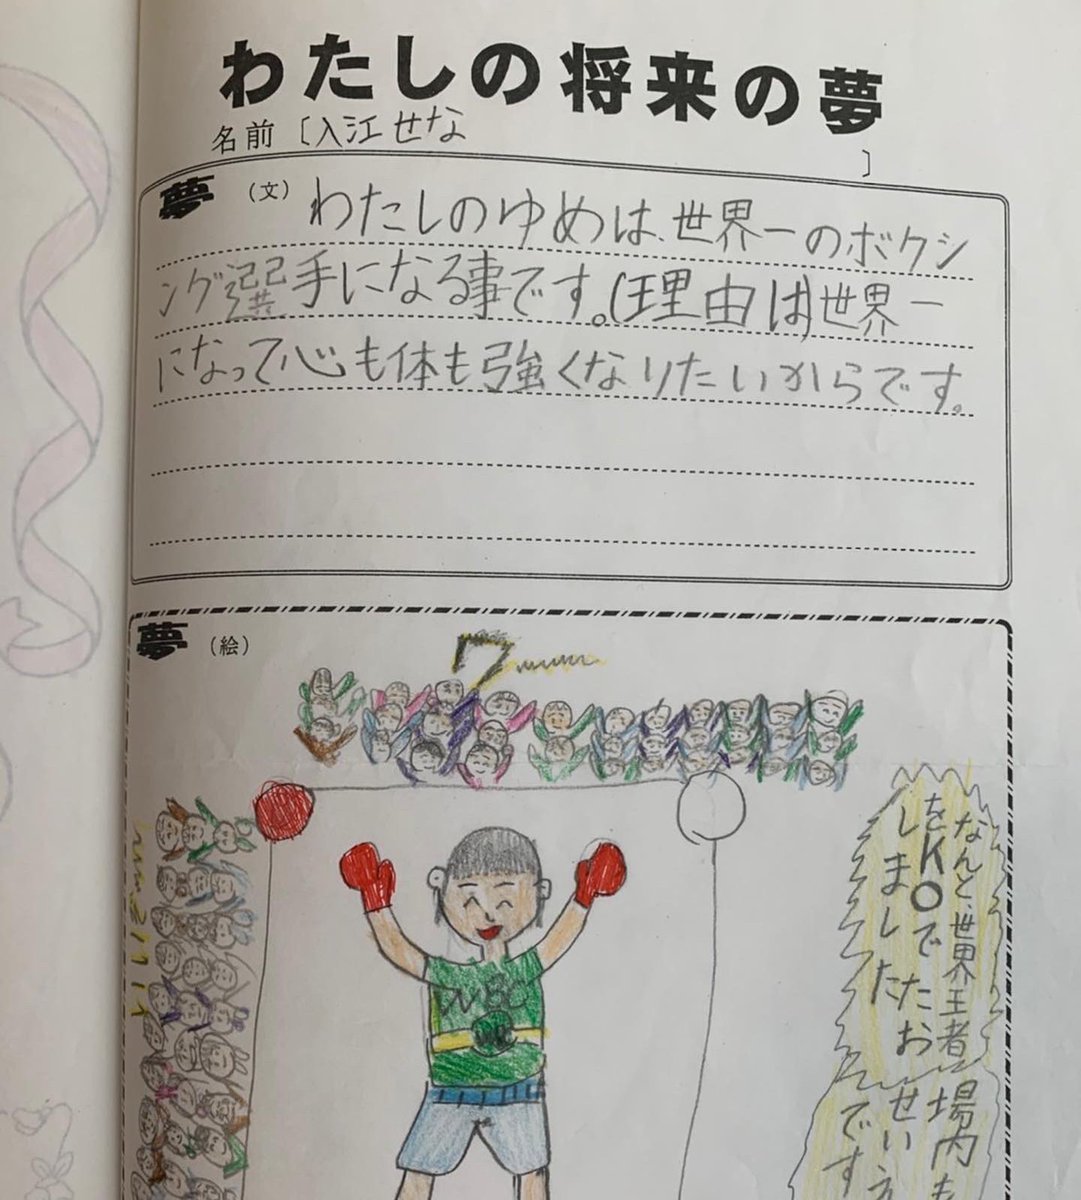 わたしの将来の夢
名前〔入江せな
〕
夢（文）わたしのゆめは、世界一のボクシ
ング選手になる事です。(理由は)世界一
になって心も体も強くなりたいからです。
夢（絵）
ワー
なんと、世界王者
をKOでたお
しました
場内も
せいえ
です
WBC